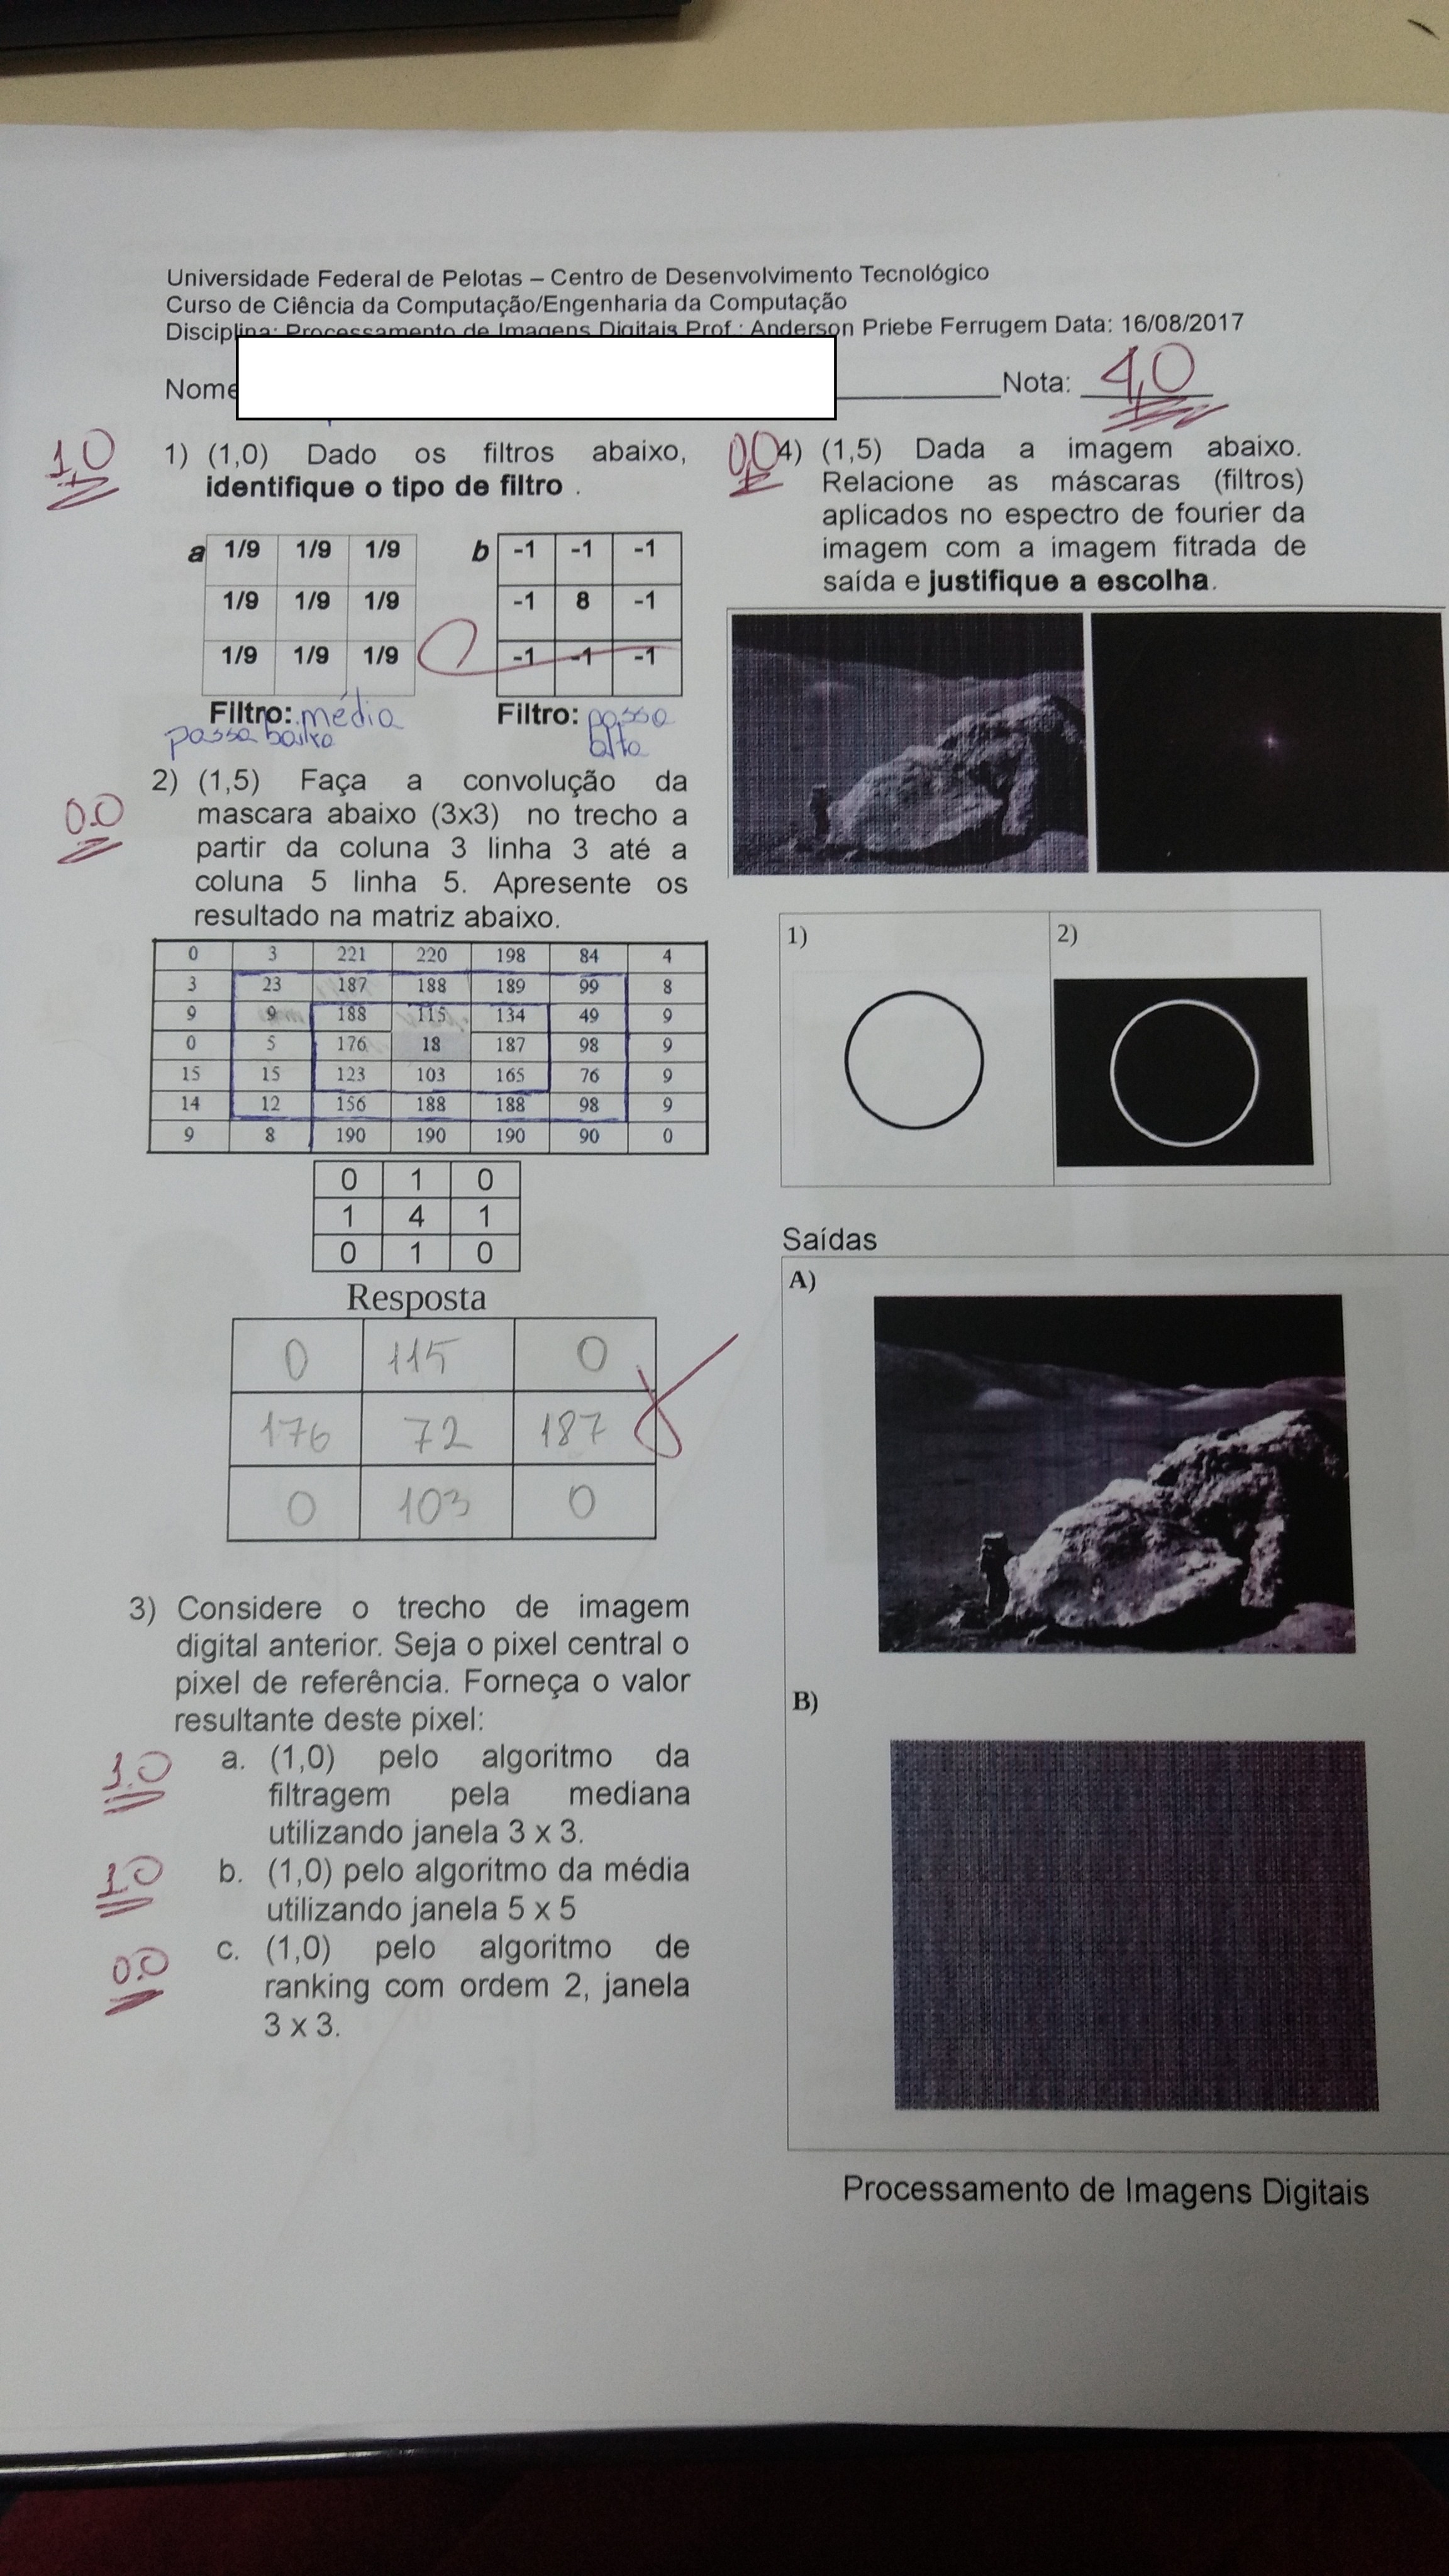 Universidade Federal de Pelotas – Centro de Desenvolvimento Tecnológico
Curso de Ciência da Computação/Engenharia da Computação
Disciplina: Processamento de Imagens Digitais Prof.: Anderson Priebe Ferrugem Data: 16/08/2017
Nome
Nota: 4,0
1,0
1) (1,0) Dado os filtros abaixo,
identifique o tipo de filtro .
a
1/9 1/9 1/9
1/9 1/9 1/9
1/9 1/9 1/9
Filtro: média
passa baixa
b
-1 -1 -1
-1 8 -1
-1 -1 -1
Filtro: passa
alta
0.0
2) (1,5) Faça a convolução da
mascara abaixo (3x3) no trecho a
partir da coluna 3 linha 3 até a
coluna 5 linha 5. Apresente os
resultado na matriz abaixo.
0 3 221 220 198 84 4
3 23 187 188 189 99 8
9 9 188 115 134 49 9
0 5 176 18 187 98 9
15 15 123 103 165 76 9
14 12 156 188 188 98 9
9 8 190 190 190 90 0
0 1 0
1 4 1
0 1 0
Resposta
0 115 0
176 72 187
0 103 0
3) Considere o trecho de imagem
digital anterior. Seja o pixel central o
pixel de referência. Forneça o valor
resultante deste pixel:
1.0
a. (1,0) pelo algoritmo da
filtragem pela mediana
utilizando janela 3 x 3.
1.0
b. (1,0) pelo algoritmo da média
utilizando janela 5 x 5
0.0
c. (1,0) pelo algoritmo de
ranking com ordem 2, janela
3 x 3.
0,0
4) (1,5) Dada a imagem abaixo.
Relacione as máscaras (filtros)
aplicados no espectro de fourier da
imagem com a imagem fitrada de
saída e justifique a escolha.
1)
2)
Saídas
A)
B)
Processamento de Imagens Digitais